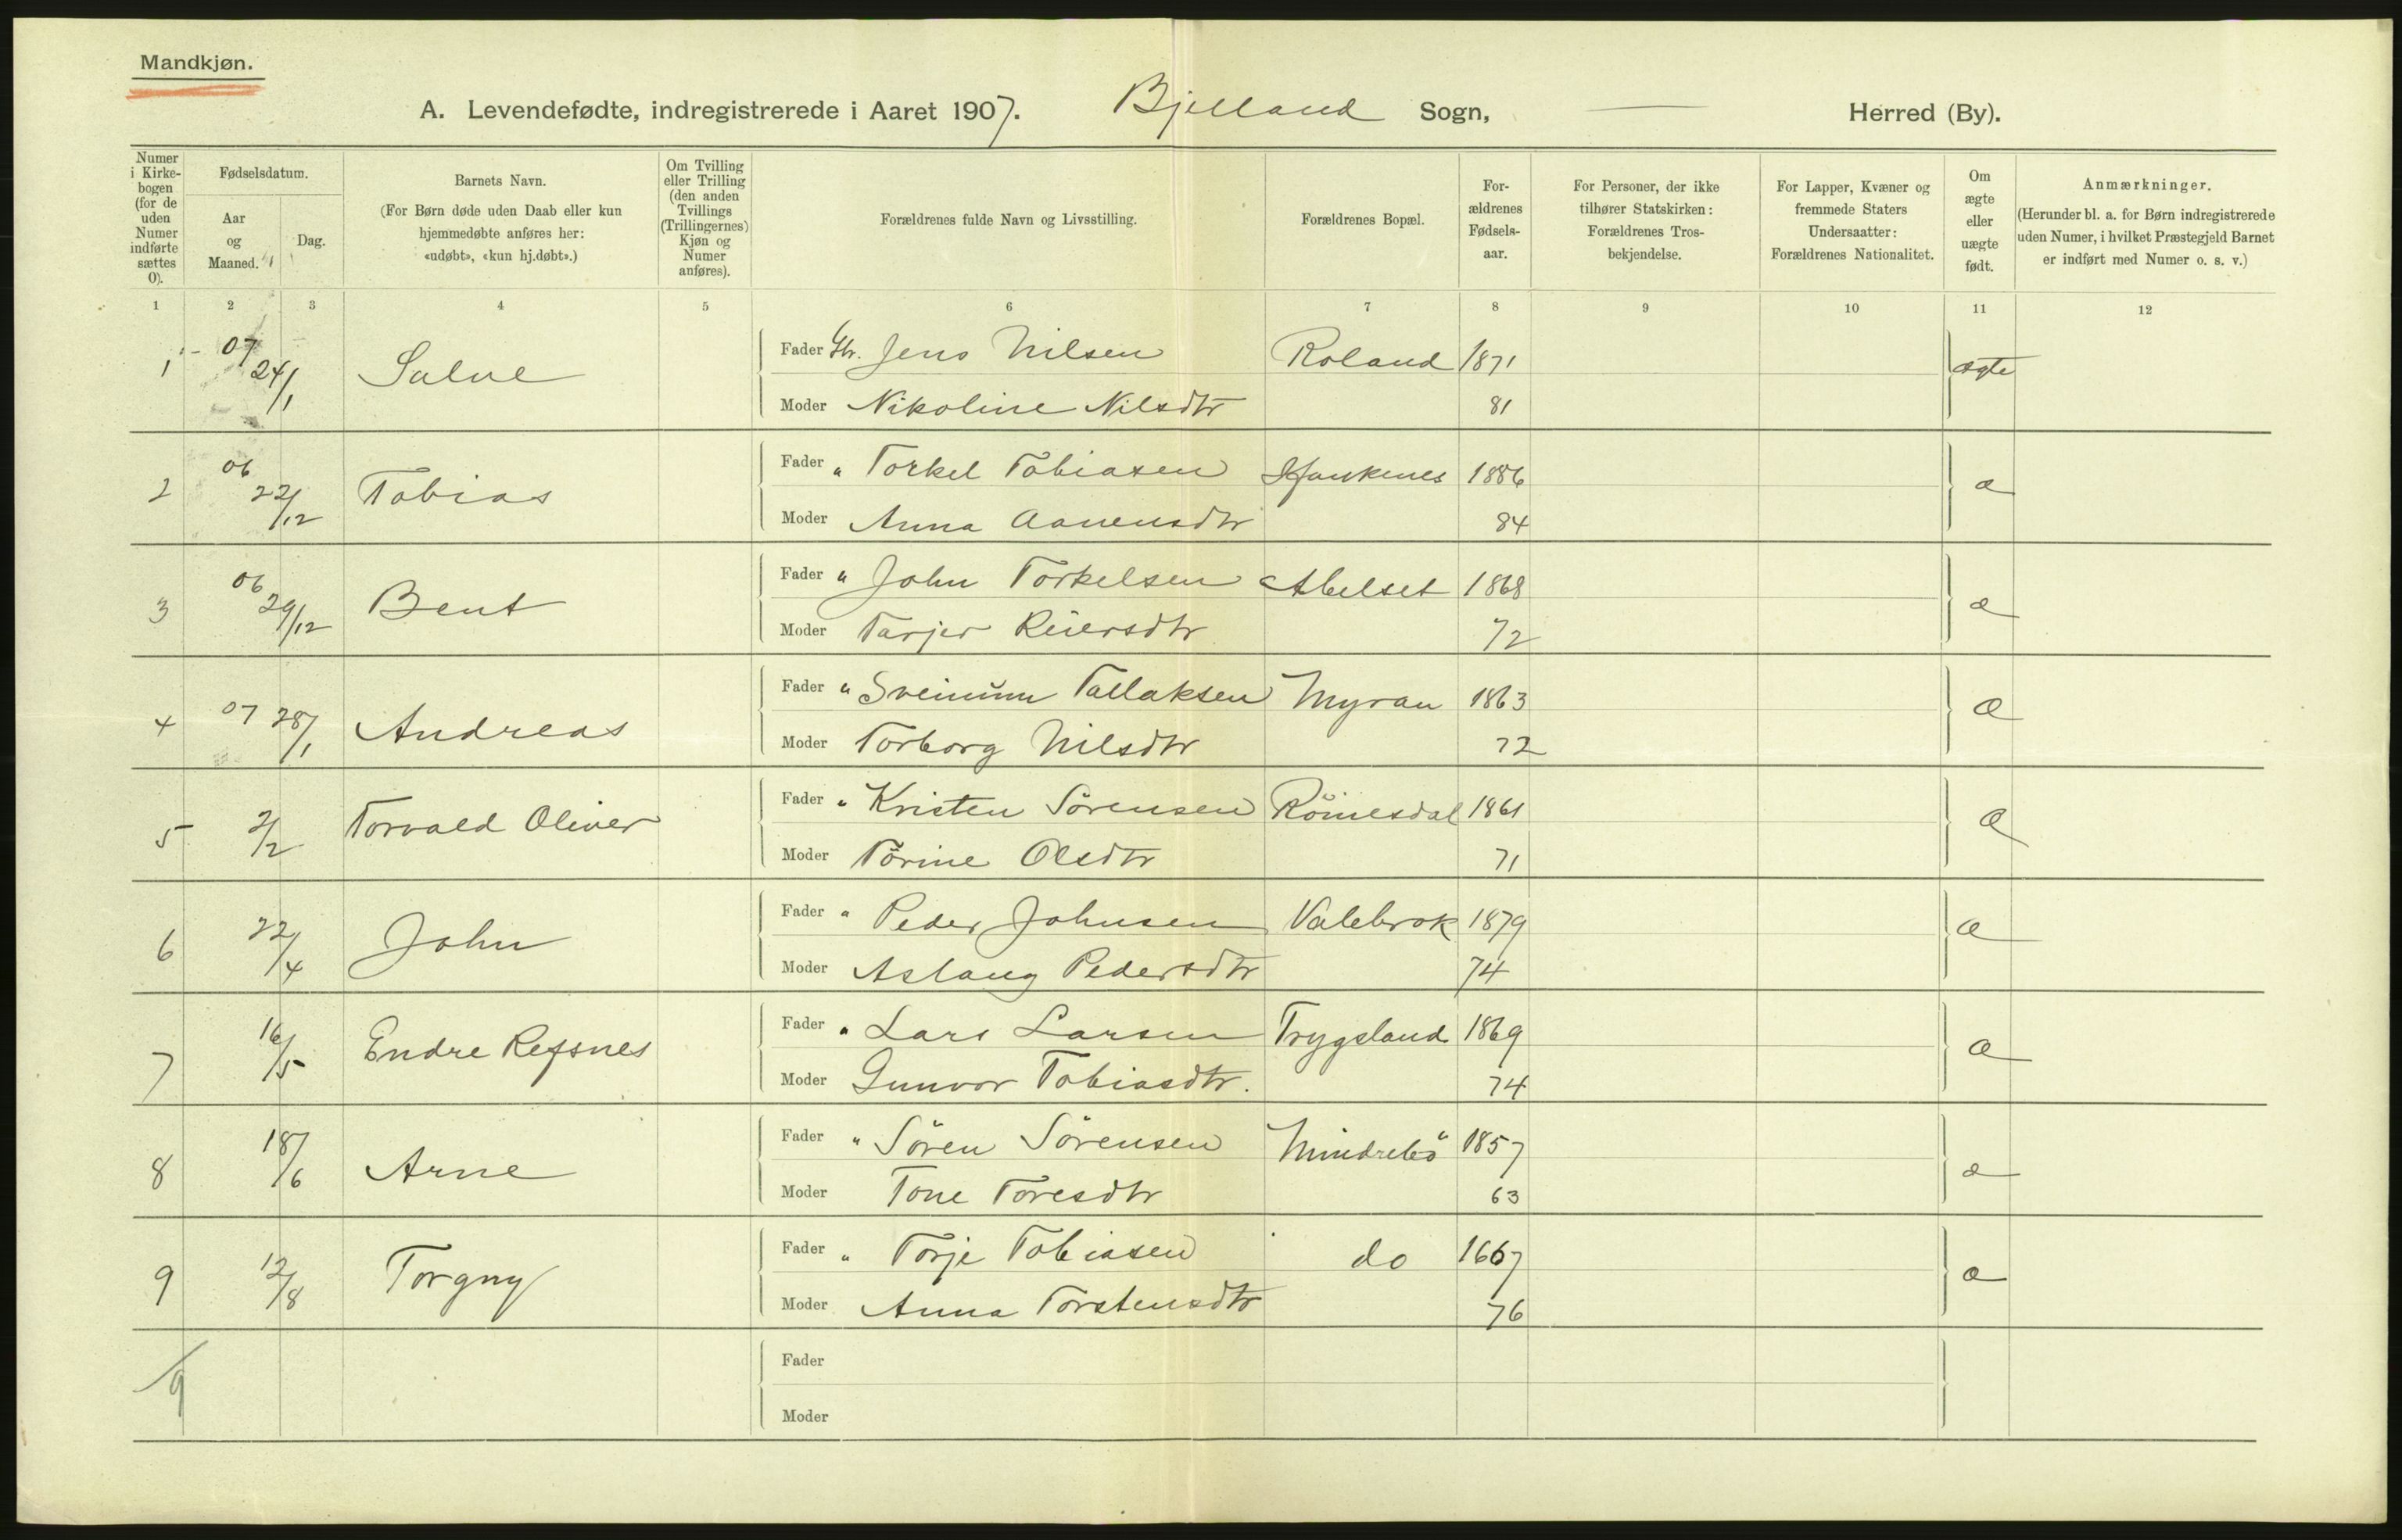 Mandkjøn.
A. Levendefødte, indregistrerede i Aaret 1907. Bjelland Sogn, Herred (By).
Numer i Kirke-bogen (for de uden Numer indførte sættes 0).
Fødselsdatum.
Aar og Maaned.
Dag.
Barnets Navn.
(For Børn døde uden Daab eller kun hjemmedøbte anføres her: «udøbt», «kun hj.døbt».)
Om Tvilling eller Trilling (den anden Tvillings (Trillingernes) Kjøn og Numer anføres).
Forældrenes fulde Navn og Livsstilling.
Forældrenes Bopæl.
For-ældrenes Fødsels-aar.
For Personer, der ikke tilhører Statskirken: Forældrenes Tros-bekjendelse.
For Lapper, Kvæner og fremmede Staters Undersaatter: Forældrenes Nationalitet.
Om ægte eller uægte født.
Anmærkninger.
(Herunder bl. a. for Børn indregistrerede uden Numer, i hvilket Præstegjeld Barnet er indført med Numer o. s. v.)
1 2 3 4 5 6 7 8 9 10 11 12
1 07 24/1 Salve Fader Gbr. Jens Nilsen Roland 1871 ægte
Moder Nikoline Nilsdtr 81
2 06 22/12 Tobias Fader " Torkel Tobiasen 1886 æ
Moder Anna Aanensdtr 84
3 06 29/12 Bent Fader " John Torkelsen Abelset 1868 æ
Moder Tarjer Reiersdtr 72
4 07 28/1 Andreas Fader " Sveinum Tallaksen Myran 1863 æ
Moder Torborg Nilsdtr 72
5 2/2 Torvald Oliver Fader " Kristen Sörensen Römesdal 1861 æ
Moder Torine Olsdtr 71
6 22/4 John Fader " Peder Johnsen Valebrok 1879 æ
Moder Aslaug Pedersdtr 74
7 16/5 Endre Refsnes Fader " Lars Larsen Trygsland 1869 æ
Moder Gunvor Tobiasdtr. 74
8 18/6 Arne Fader " Sören Sörensen Mindrebö 1857 æ
Moder Tone Toresdtr 63
9 12/8 Torgny Fader " Torje Tobiasen do 1667 æ
Moder Anna Torstensdtr 76
9 Fader
Moder